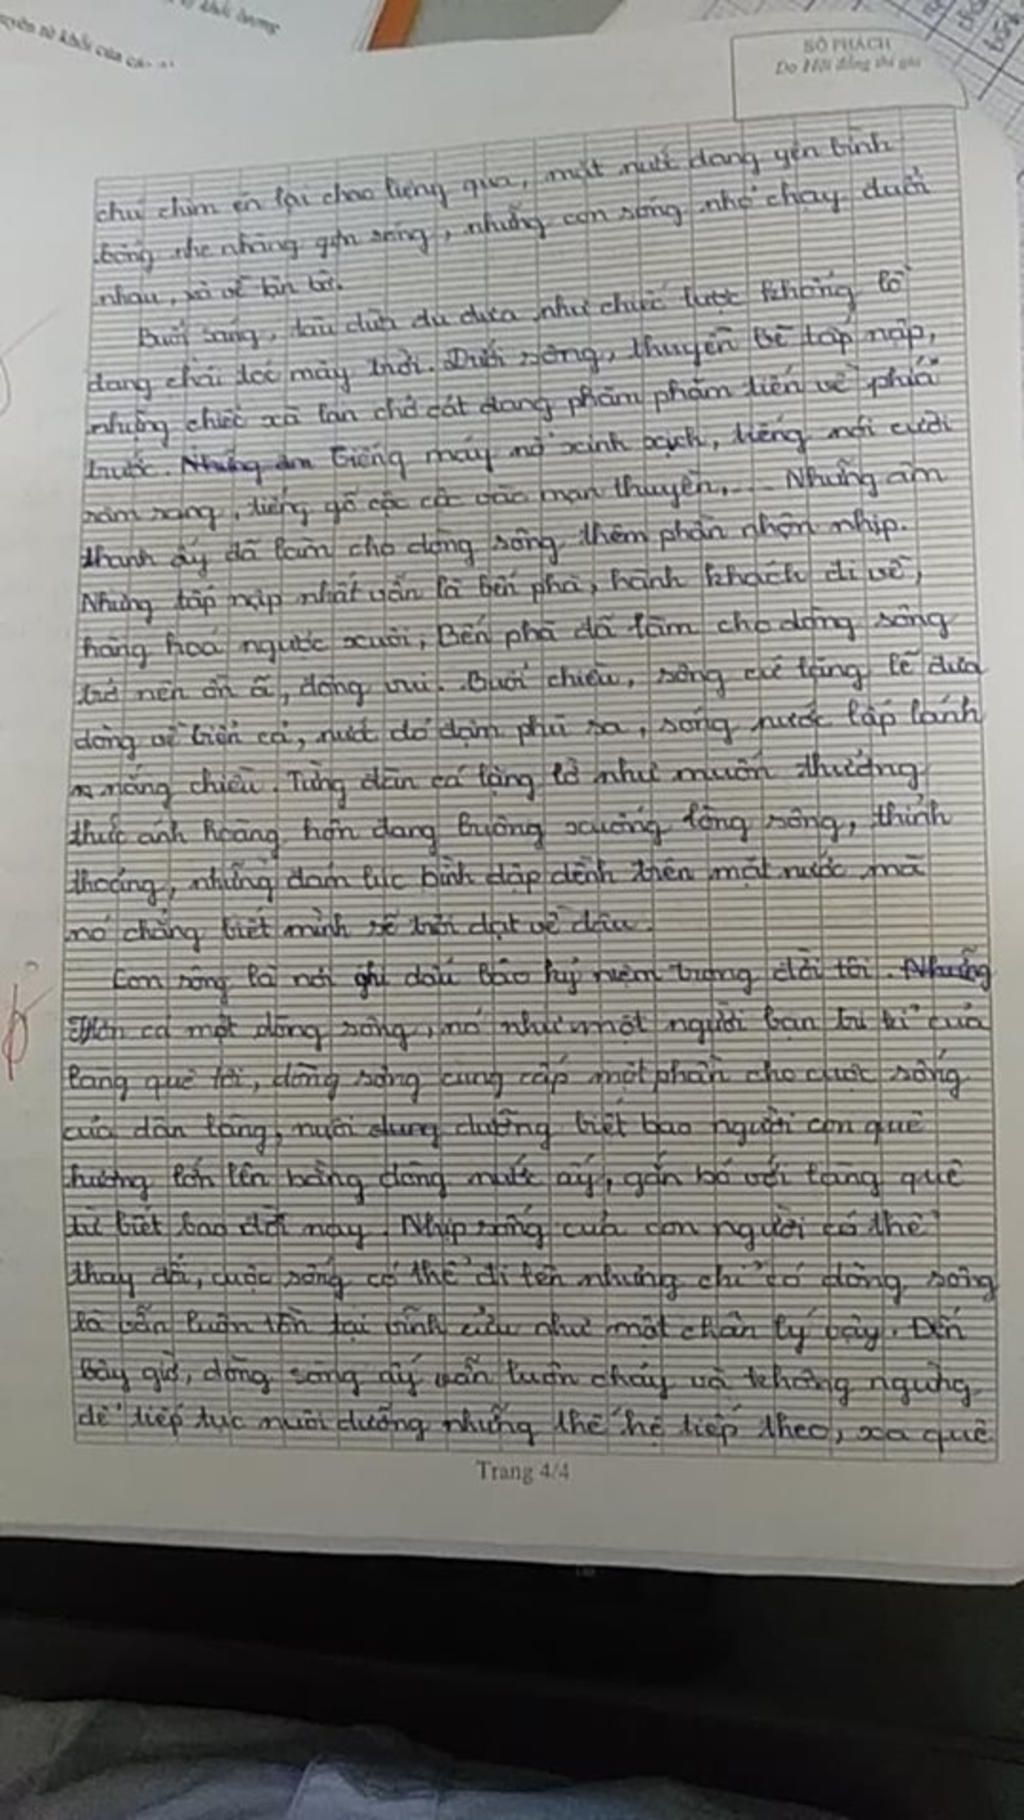 khối lượng
nguyên tử khối của các
SỐ PHÁCH
Do Hội đồng thi ghi
chú chim én lại chao liệng qua, mặt nước đang yên bình
bỗng nhẹ nhàng gợn sóng, những con sóng nhỏ chạy đuổi
nhau, xô về tận bờ.
Buổi sáng, tàu dừa đu đưa như chiếc lược khổng lồ
đang chải tóc mây trời. Dưới sông, thuyền bè tấp nập,
những chiếc xà lan chở cát đang phăm phăm tiến về phía
trước. Những âm Tiếng máy nổ xình xịch, tiếng nói cười
râm rang, tiếng gõ cộc cộc vào mạn thuyền,... Những âm
thanh ấy đã làm cho dòng sông thêm phần nhộn nhịp.
Nhưng tấp nập nhất vẫn là bến phà, hành khách đi về,
hàng hoá ngược xuôi, Bến phà đã làm cho dòng sông
trở nên ồn ã, đông vui. Buổi chiều, sông cứ lặng lẽ đưa
dòng về biển cả, nước đỏ đậm phù sa, sóng nước lấp lánh
nắng chiều. Từng đàn cá lặng lờ như muốn thưởng
thức ánh hoàng hôn đang buông xuống lòng sông, thỉnh
thoảng, những đám lục bình dập dềnh trên mặt nước mà
nó chẳng biết mình sẽ trôi dạt về đâu.
Con sông là nơi ghi dấu bao kỷ niệm trong đời tôi. Những
có một dòng sông, nó như một người bạn tri kỉ của
làng quê tôi, dòng sông cung cấp một phần cho cuộc sống
của dân làng, nuôi dung dưỡng biết bao người con quê
hương lớn lên bằng dòng nước ấy, gắn bó với làng quê
từ biết bao đời nay. Nhịp sống của con người có thể
thay đổi, cuộc sống có thể đi lên nhưng chỉ có dòng sông
là vẫn luôn tồn tại vĩnh cửu như một chân lý vậy. Đến
bây giờ, dòng sông ấy vẫn luôn chảy và không ngừng
để tiếp tục nuôi dưỡng những thế hệ tiếp theo, xa quê
Trang 4/4